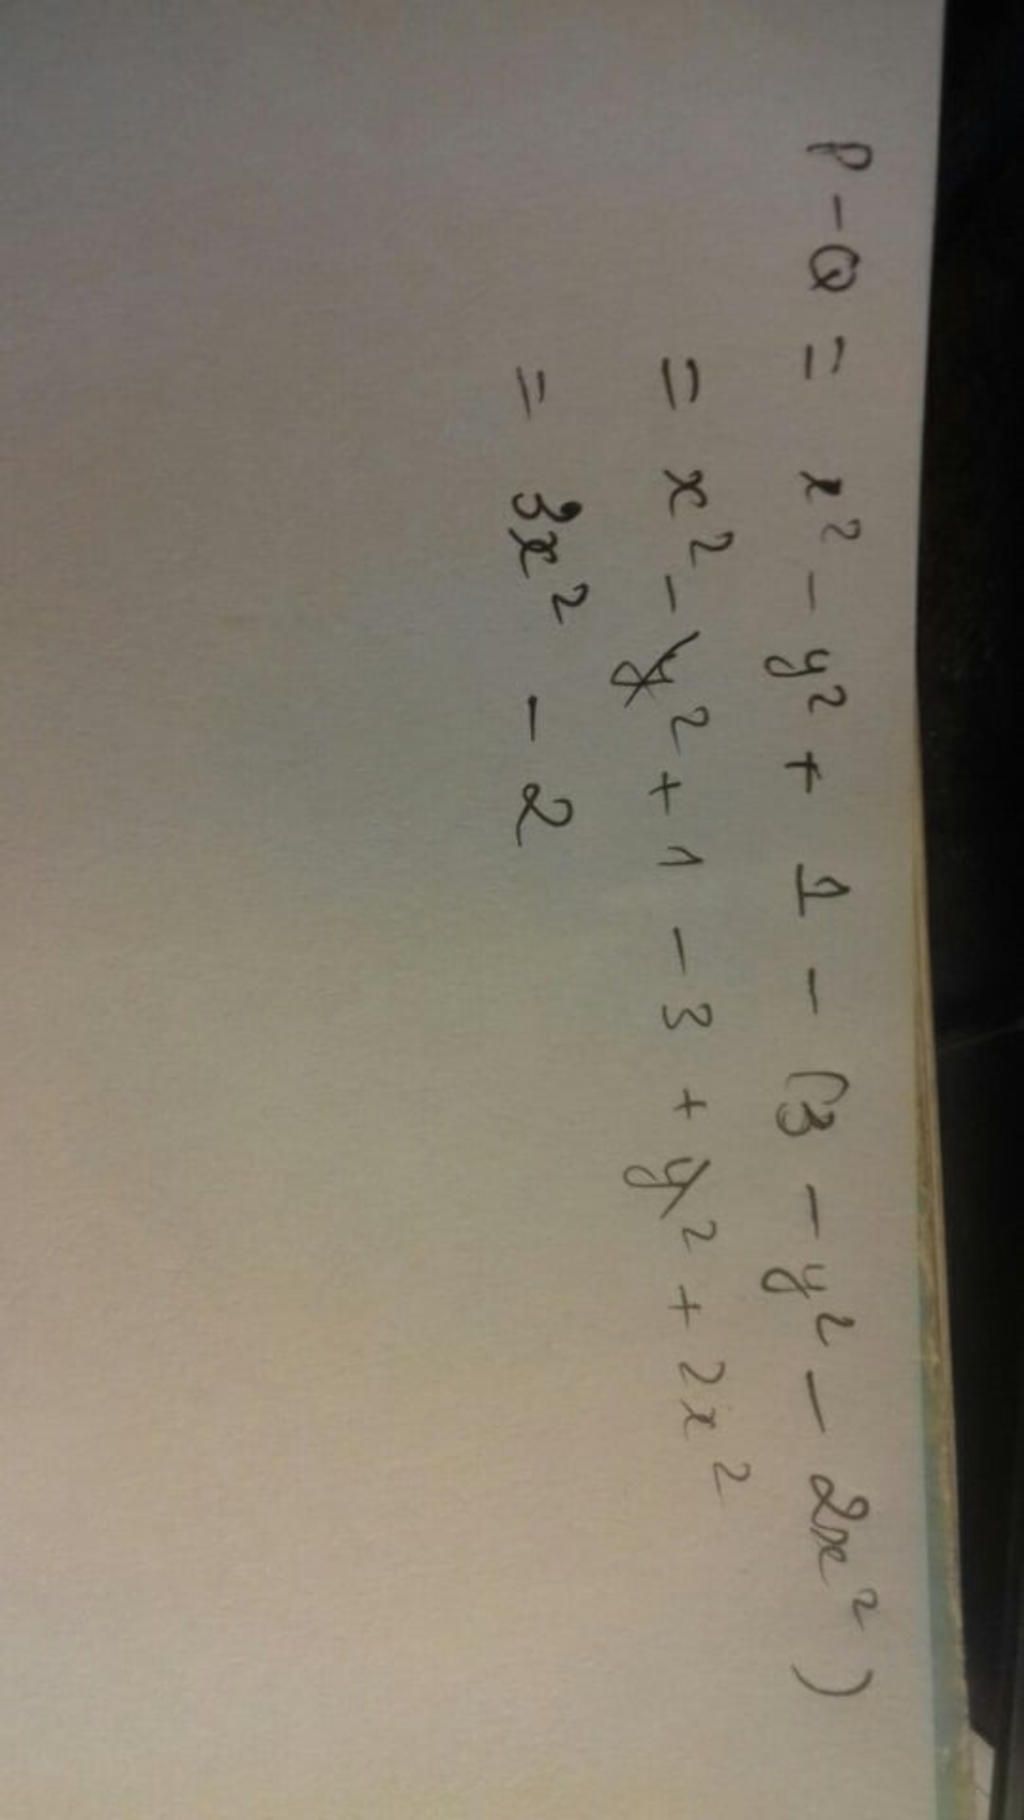 P - Q = x² - y² + 1 - (3 - y² - 2x²)
= x² - y² + 1 - 3 + y² + 2x²
= 3x² - 2